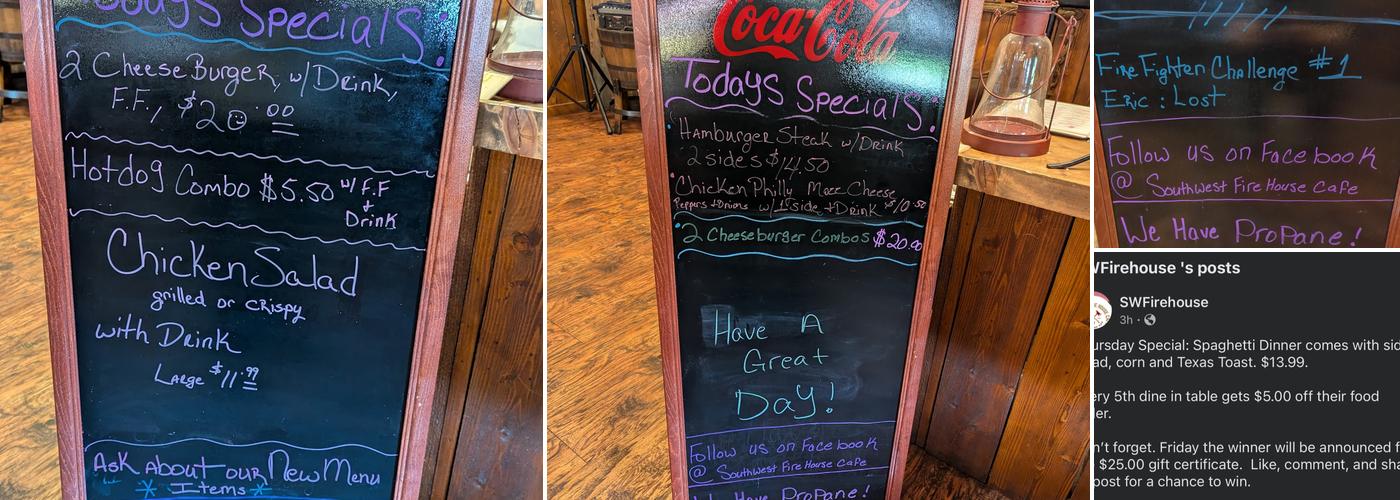 Todays Specials:
2 CheeseBurger, w/Drink,
F.F., $20.00
Hotdog Combo $5.50 w/ F.F
+
Drink
Chicken Salad
grilled or crispy
with Drink
Large $11.99
Ask About our New Menu
* Items *
Coca-Cola
Todays Specials:
Hamburger Steak w/Drink
2 sides $14.50
Chicken Philly Mozz Cheese
Peppers + Onions w/ 1 side + Drink $10.50
2 Cheeseburger Combos $20.00
Have A
Great
Day!
Follow us on Facebook
@ Southwest Fire House Cafe
We Have Propane!
Fire Fighten Challenge #1
Eric : Lost
Follow us on Facebook
@ Southwest Fire House Cafe
We Have Propane!
WFirehouse 's posts
SWFirehouse
3h
ursday Special: Spaghetti Dinner comes with sid
ad, corn and Texas Toast. $13.99.
ery 5th dine in table gets $5.00 off their food
der.
n't forget. Friday the winner will be announced f
$25.00 gift certificate. Like, comment, and sha
post for a chance to win.